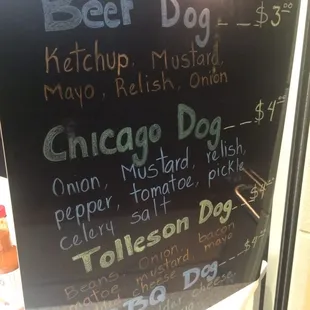 Beer Dog__$3.00
Ketchup, Mustard,
Mayo, Relish, Onion
Chicago Dog__$4.00
Onion, Mustard, relish,
pepper, tomatoe, pickle
celery salt
Tolleson Dog $4
Beans, Onion, bacon
mustard mayo
cheese
BQ Dog $4
cheese